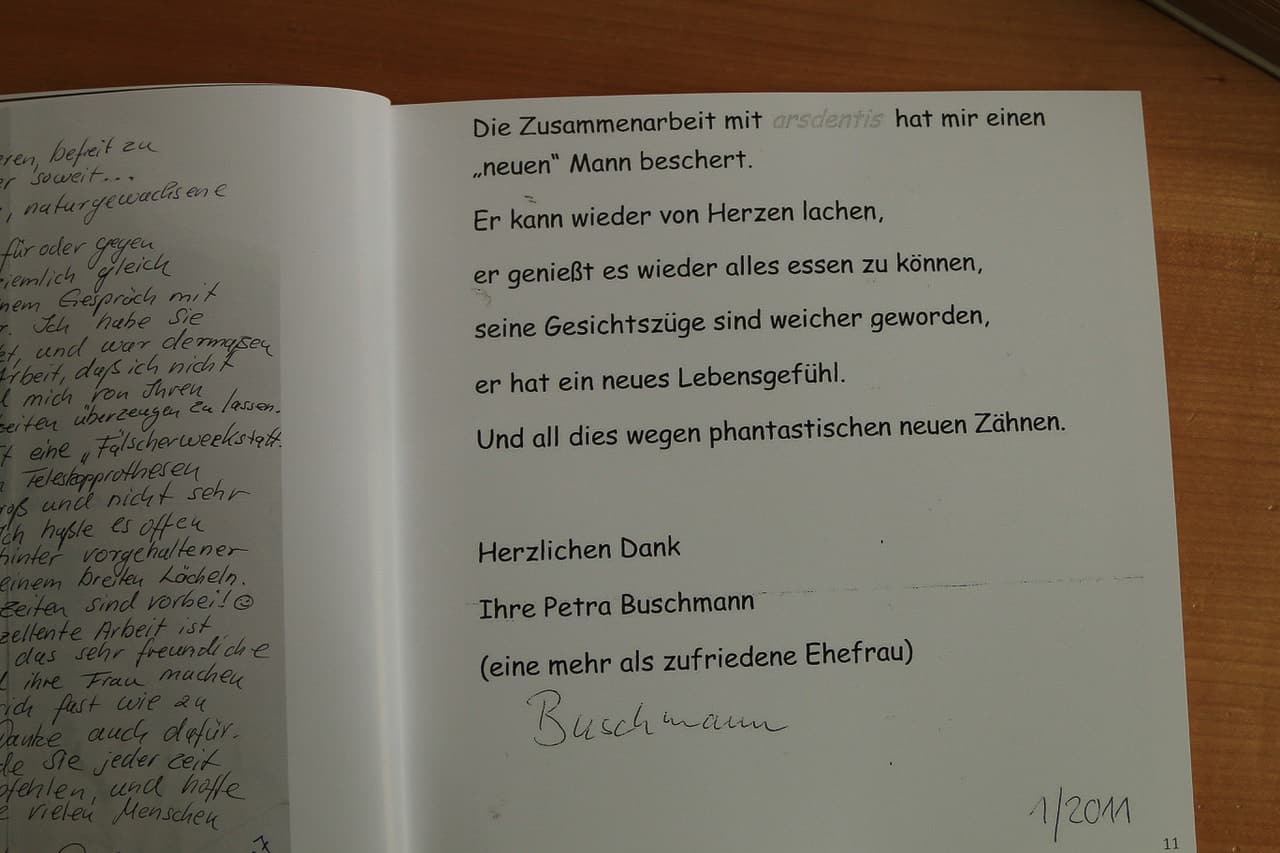 befreit zu
soweit...
, naturgewachsene
für oder gegen
ziemlich gleich
Gespräch mit
Ich habe Sie
und war dermaßen
Arbeit, daß ich nicht
mich von Ihren
überzeugen zu lassen.
eine „Fälscherweekstatt
Teleskopprothesen
und nicht sehr
es offen
hinter vorgehaltener
einem breiten Lächeln.
zeiten sind vorbei! ☺
Arbeit ist
das sehr freundliche
ihre Frau machen
fast wie zu
Danke auch dafür.
Sie jeder zeit
und hoffe
vielen Menschen
Die Zusammenarbeit mit arsdentis hat mir einen
„neuen“ Mann beschert.
Er kann wieder von Herzen lachen,
er genießt es wieder alles essen zu können,
seine Gesichtszüge sind weicher geworden,
er hat ein neues Lebensgefühl.
Und all dies wegen phantastischen neuen Zähnen.
Herzlichen Dank
Ihre Petra Buschmann
(eine mehr als zufriedene Ehefrau)
Buschmann
1/2011
11